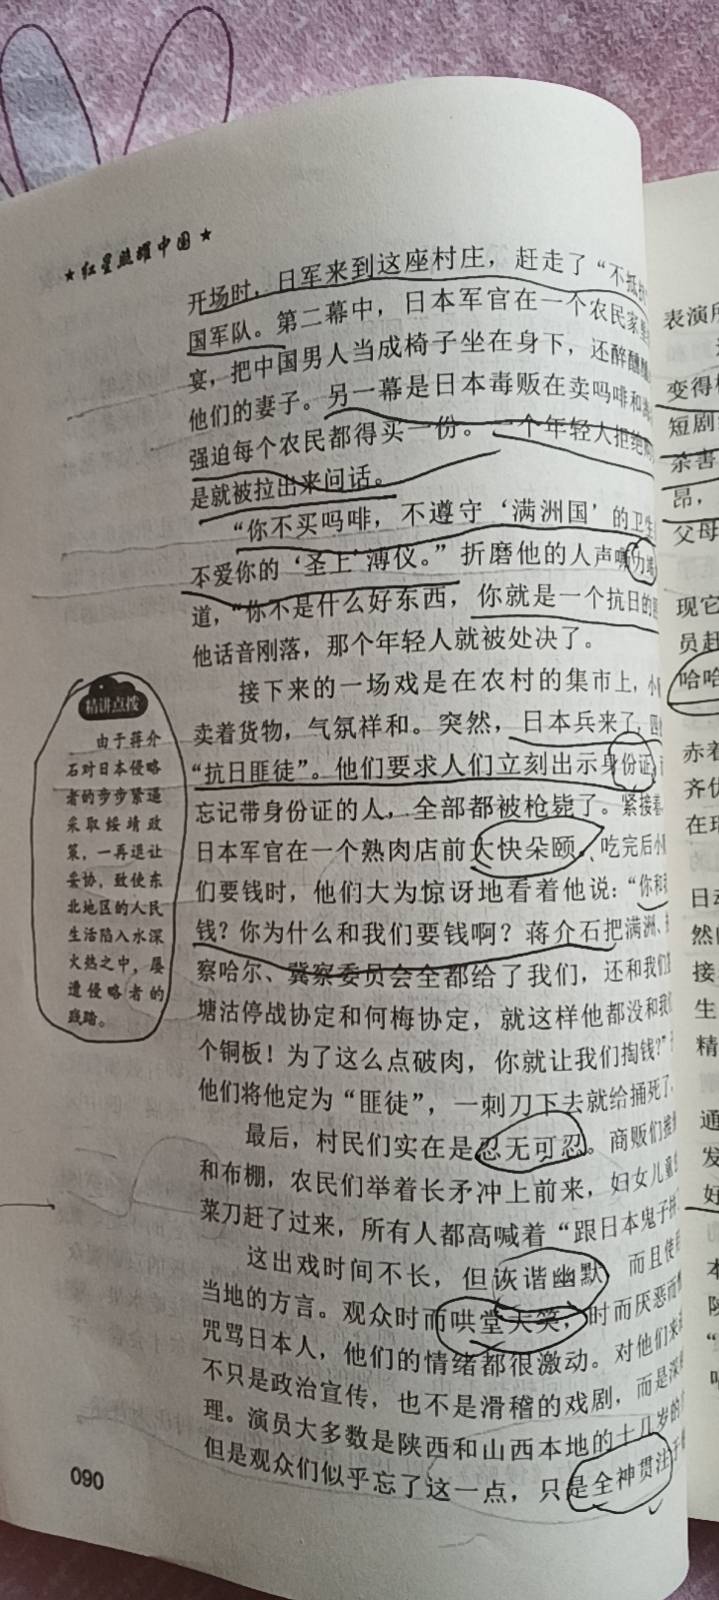 ★红星照耀中国★
开场时，日军来到这座村庄，赶走了“不抵抗
国军队。第二幕中，日本军官在一个农民家里
宴，把中国男人当成椅子坐在身下，还醉醺醺
他们的妻子。另一幕是日本毒贩在卖吗啡和
强迫每个农民都得买一份。一个年轻人拒绝
是就被拉出来问话。
“你不买吗啡，不遵守‘满洲国’的卫生
不爱你的‘圣上’溥仪。”折磨他的人声嘶力竭
道，“你不是什么好东西，你就是一个抗日的
他话音刚落，那个年轻人就被处决了。
接下来的一场戏是在农村的集市上，小
卖着货物，气氛祥和。突然，日本兵来了，四
“抗日匪徒”。他们要求人们立刻出示身份证，
忘记带身份证的人，全部都被枪毙了。紧接着
日本军官在一个熟肉店前大快朵颐。吃完后小
们要钱时，他们大为惊讶地看着他说：“你和我
钱？你为什么和我们要钱啊？蒋介石把满洲、
察哈尔、冀察委员会全都给了我们，还和我们
塘沽停战协定和何梅协定，就这样他都没和我
个铜板！为了这么点破肉，你就让我们掏钱？”
他们将他定为“匪徒”，一刺刀下去就给捅死了。
最后，村民们实在是忍无可忍。商贩们
和布棚，农民们举着长矛冲上前来，妇女儿童
菜刀赶了过来，所有人都高喊着“跟日本鬼子拼
这出戏时间不长，但诙谐幽默，而且使
当地的方言。观众时而哄堂大笑，时而厌恶而
咒骂日本人，他们的情绪都很激动。对他们来
不只是政治宣传，也不是滑稽的戏剧，而是深
理。演员大多数是陕西和山西本地的十几岁的
但是观众们似乎忘了这一点，只是全神贯注
精讲点拨
由于蒋介
石对日本侵略
者的步步紧逼
采取绥靖政
策，一再退让
妥协，致使东
北地区的人民
生活陷入水深
火热之中，屡
遭侵略者的
践踏。
090
表演
变得
短剧
杀害
昂，
父母
现它
员赶
哈哈
赤着
齐
在
日
然
接
生
精
通
发
好